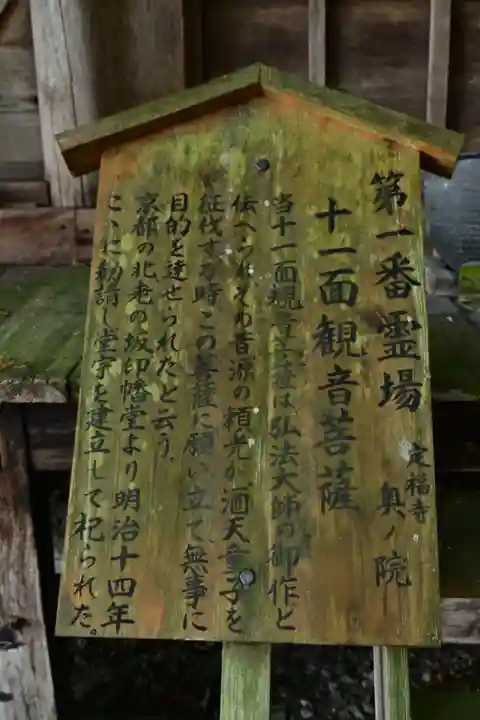 第一番霊場
定福寺
奥ノ院
十一面観音菩薩
当十一面観音菩薩は弘法大師の御作と
伝へられその昔源の頼光が酒天童子を
征伐する時この菩薩に願い立て無事に
目的を達せられたと云う。
京都の北老の坂印幡堂より明治十四年
こゝに勧請し堂宇を建立して祀られた。